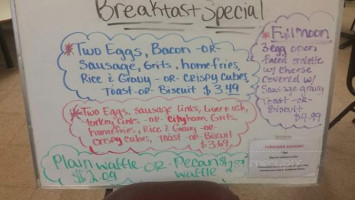 Breakfast Special
* Two Eggs, Bacon -or-
Sausage, Grits, homefries,
Rice & Gravy -or- crispy cubes,
Toast -or- Biscuit $3.49
* Full Moon
3 egg
faced omlette
w/ cheese
covered w/
Sausage gravy
Toast -or-
Biscuit
$4.99
* Two Eggs, sausage links,
turkey links -or- city ham, Grits,
homefries, Rice & Gravy -or-
crispy cubes, Toast -or- Biscuit
$3.69
Plain waffle -or- Pecan
$2.09 waffle